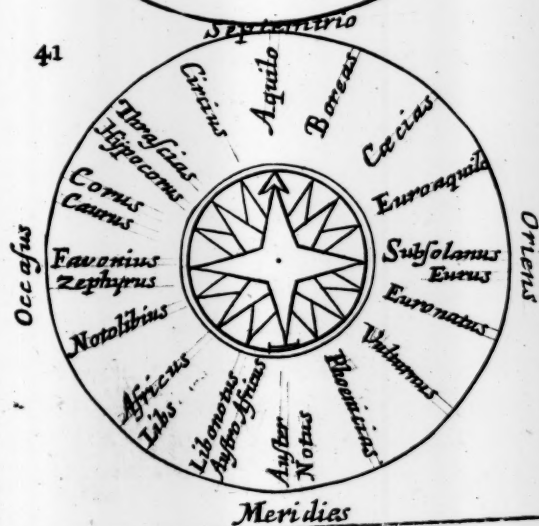 Septentrio
41
Circius
Aquilo
Boreas
Cæcias
Euroaquilo
Subſolanus
Eurus
Euronatus
Vulturnus
Phoenicias
Auſter
Notus
Libonotus
Auſtro Africus
Africus
Libs
Notolibius
Favonius
Zephyrus
Corus
Caurus
Thraſcias
Hypocorus
Occaſus
Oriens
Meridies